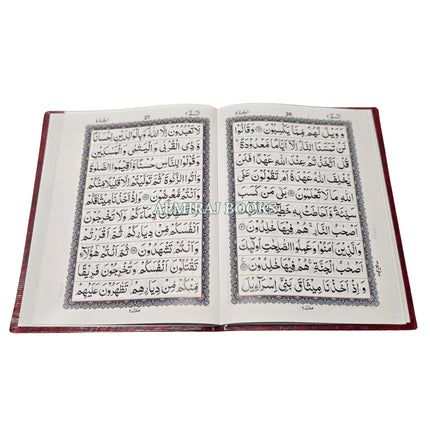 26
وَ وَيْلٌ لَّهُمْ مِّمَّا يَكْسِبُوْنَ وَقَالُوْا
لَنْ تَمَسَّنَا النَّارُ اِلَّآ اَيَّامًا مَّعْدُوْدَةً
قُلْ اَتَّخَذْتُمْ عِنْدَ اللّٰهِ عَهْدًا فَلَنْ
يُّخْلِفَ اللّٰهُ عَهْدَهٗٓ اَمْ تَقُوْلُوْنَ عَلَى
اللّٰهِ مَا لَا تَعْلَمُوْنَ بَلٰى مَنْ كَسَبَ
سَيِّئَةً وَّاَحَاطَتْ بِهٖ خَطِيْٓئَتُهٗ فَاُولٰٓئِكَ
اَصْحٰبُ النَّارِ هُمْ فِيْهَا خٰلِدُوْنَ
وَالَّذِيْنَ اٰمَنُوْا وَعَمِلُوا الصّٰلِحٰتِ اُولٰٓئِكَ
اَصْحٰبُ الْجَنَّةِ هُمْ فِيْهَا خٰلِدُوْنَ
وَاِذْ اَخَذْنَا مِيْثَاقَ بَنِيْٓ اِسْرَآءِيْلَ
27
لَا تَعْبُدُوْنَ اِلَّا اللّٰهَ وَبِالْوَالِدَيْنِ اِحْسَانًا
وَّذِي الْقُرْبٰى وَالْيَتٰمٰى وَالْمَسٰكِيْنِ
وَقُوْلُوْا لِلنَّاسِ حُسْنًا وَّاَقِيْمُوا الصَّلٰوةَ
وَاٰتُوا الزَّكٰوةَ ثُمَّ تَوَلَّيْتُمْ اِلَّا قَلِيْلًا مِّنْكُمْ
وَاَنْتُمْ مُّعْرِضُوْنَ وَاِذْ اَخَذْنَا مِيْثَاقَكُمْ
لَا تَسْفِكُوْنَ دِمَآءَكُمْ وَلَا تُخْرِجُوْنَ
اَنْفُسَكُمْ مِّنْ دِيَارِكُمْ ثُمَّ اَقْرَرْتُمْ
وَاَنْتُمْ تَشْهَدُوْنَ ثُمَّ اَنْتُمْ هٰٓؤُلَآءِ
تَقْتُلُوْنَ اَنْفُسَكُمْ وَتُخْرِجُوْنَ فَرِيْقًا
مِّنْكُمْ مِّنْ دِيَارِهِمْ تَظٰهَرُوْنَ عَلَيْهِمْ
ALMIRAJ BOOKS